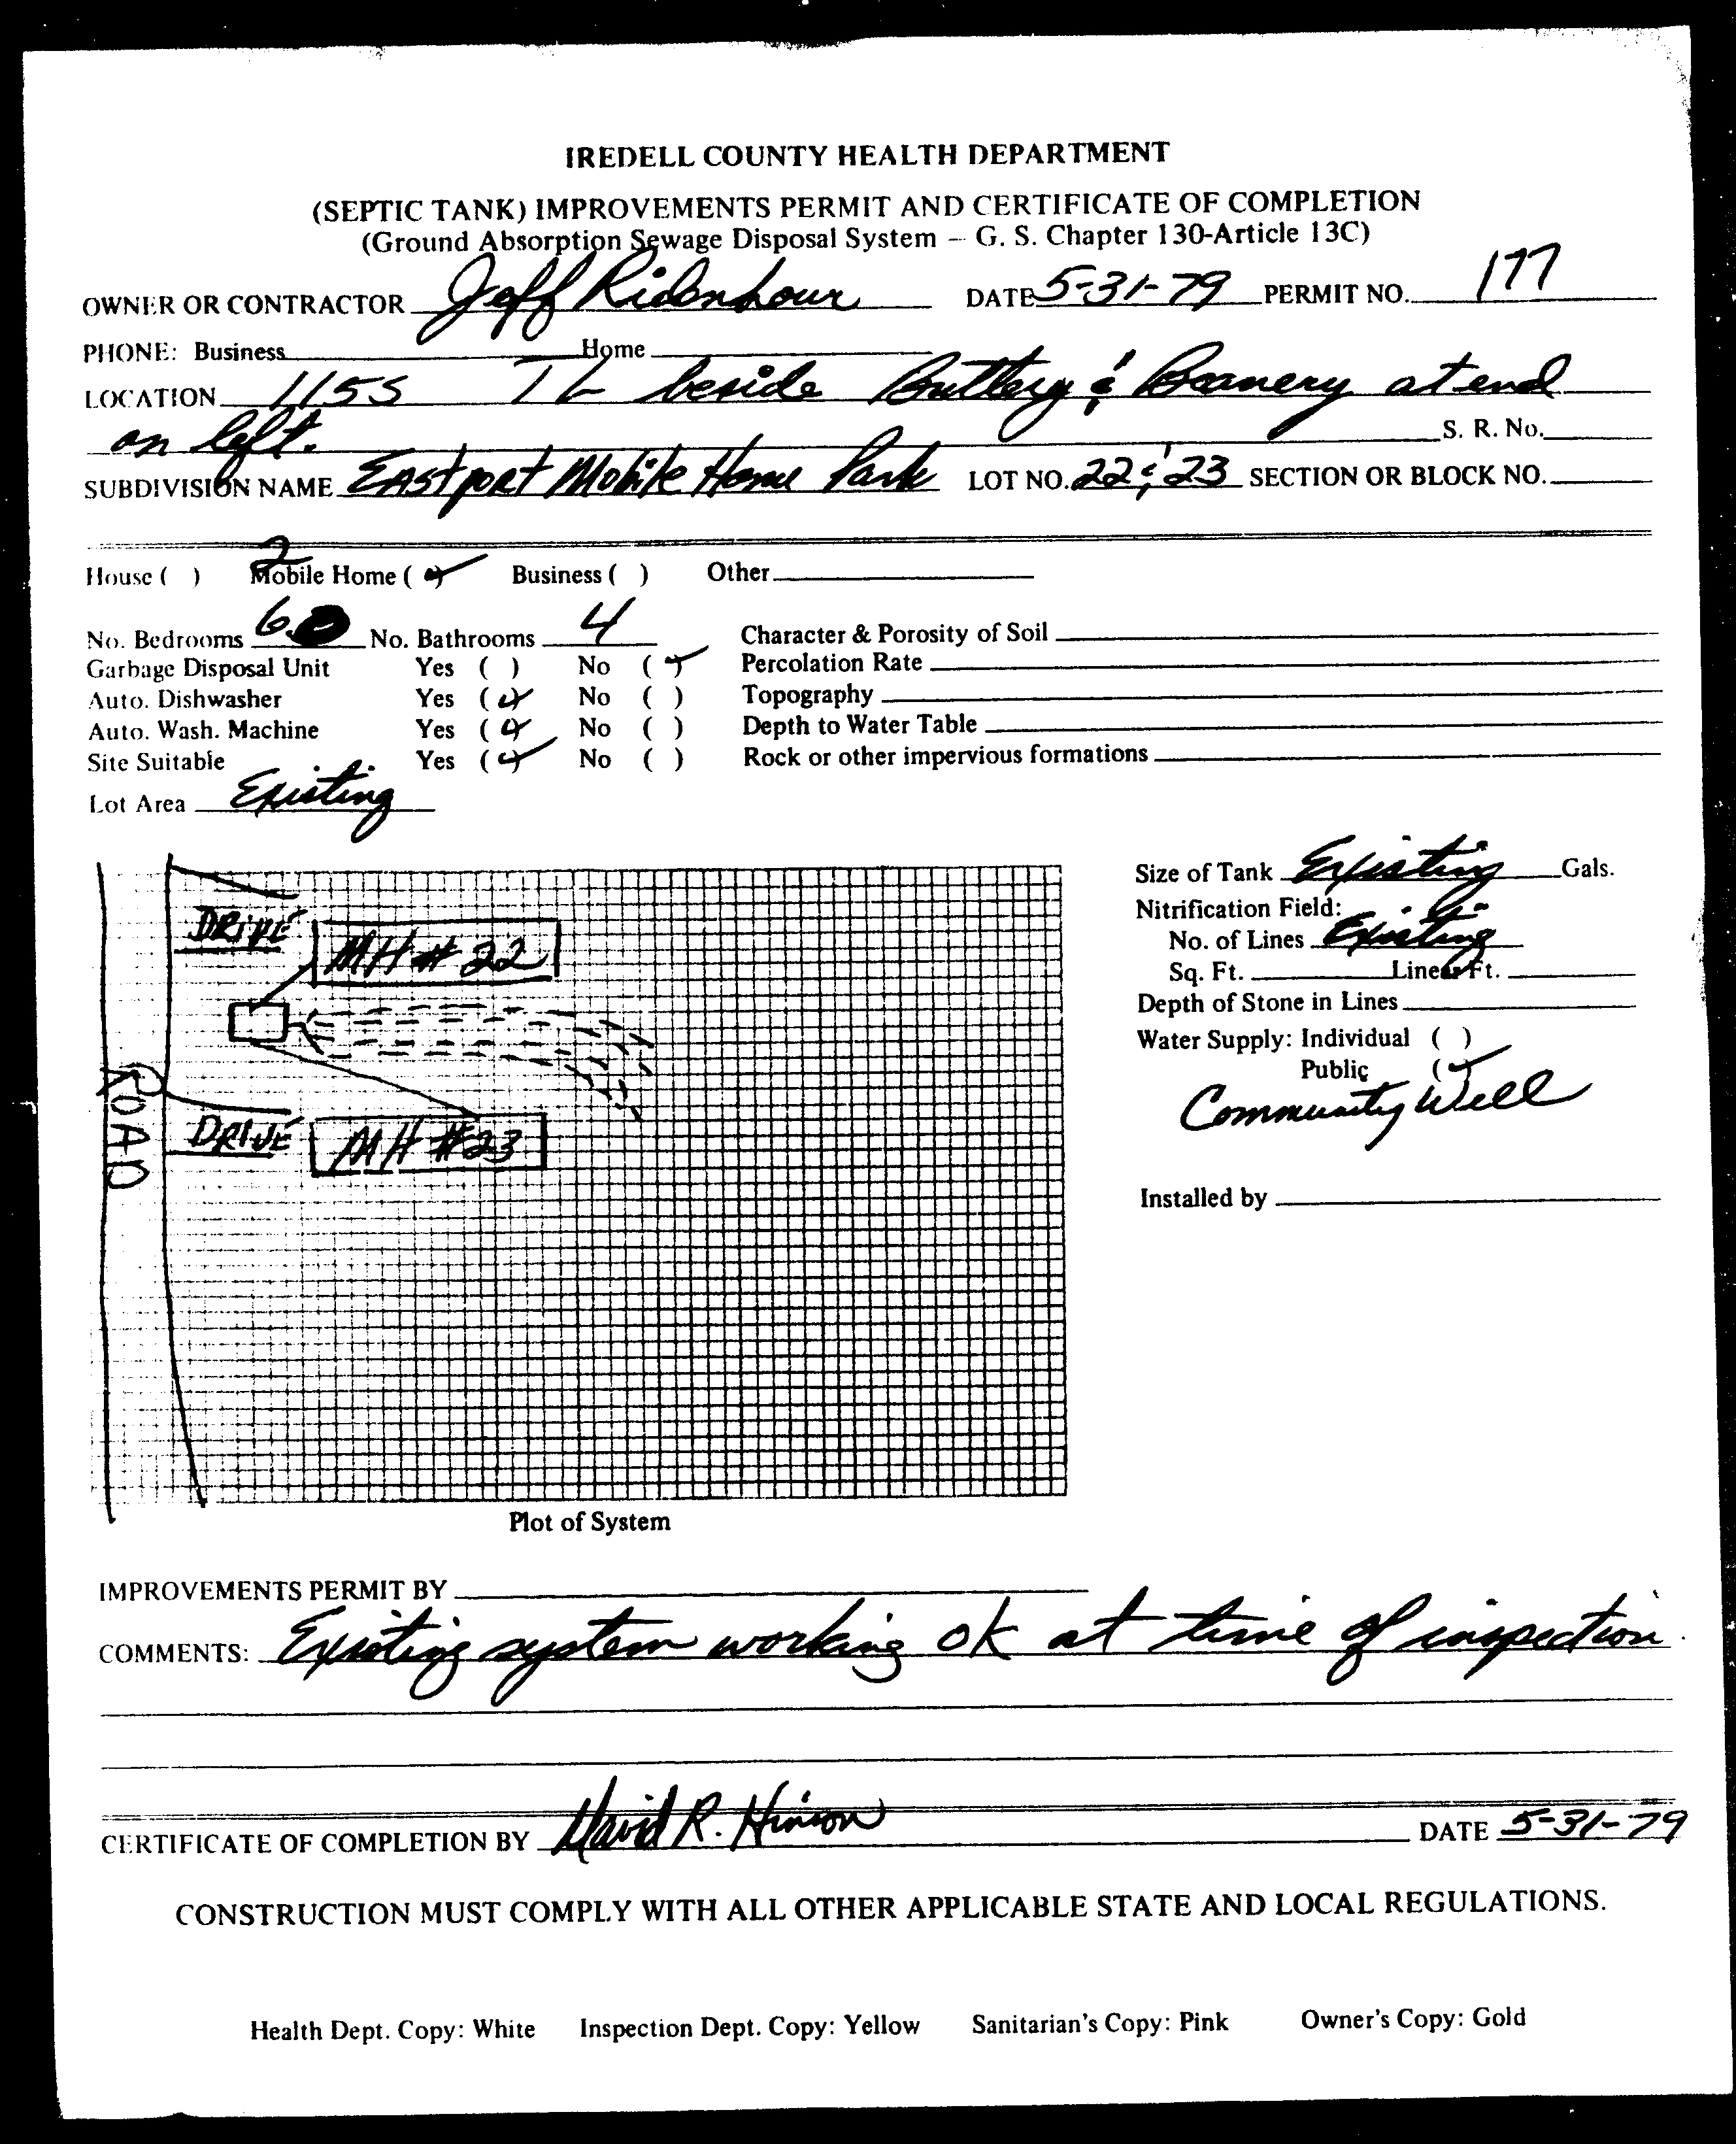 IREDELL COUNTY HEALTH DEPARTMENT
(SEPTIC TANK) IMPROVEMENTS PERMIT AND CERTIFICATE OF COMPLETION
(Ground Absorption Sewage Disposal System – G. S. Chapter 130-Article 13C)
OWNER OR CONTRACTOR Jeff Ridenhour DATE 5-31-79 PERMIT NO. 177
PHONE: Business Home
LOCATION 115S TL beside Buttery & Beanery at end
on left. S. R. No.
SUBDIVISION NAME Eastport Mobile Home Park LOT NO. 22 & 23 SECTION OR BLOCK NO.
2
House ( ) Mobile Home (✓) Business ( ) Other
No. Bedrooms 6 No. Bathrooms 4 Character & Porosity of Soil
Garbage Disposal Unit Yes ( ) No (✓) Percolation Rate
Auto. Dishwasher Yes (✓) No ( ) Topography
Auto. Wash. Machine Yes (✓) No ( ) Depth to Water Table
Site Suitable Yes (✓) No ( ) Rock or other impervious formations
Lot Area Existing
Size of Tank Existing Gals.
Nitrification Field:
No. of Lines Existing
Sq. Ft. Linear Ft.
Depth of Stone in Lines
Water Supply: Individual ( )
Public (✓)
Community Well
Installed by
DRIVE
MH # 22
ROAD
DRIVE
MH #23
Plot of System
IMPROVEMENTS PERMIT BY
COMMENTS: Existing system working ok at time of inspection.
CERTIFICATE OF COMPLETION BY David R. Hinson DATE 5-31-79
CONSTRUCTION MUST COMPLY WITH ALL OTHER APPLICABLE STATE AND LOCAL REGULATIONS.
Health Dept. Copy: White Inspection Dept. Copy: Yellow Sanitarian's Copy: Pink Owner's Copy: Gold